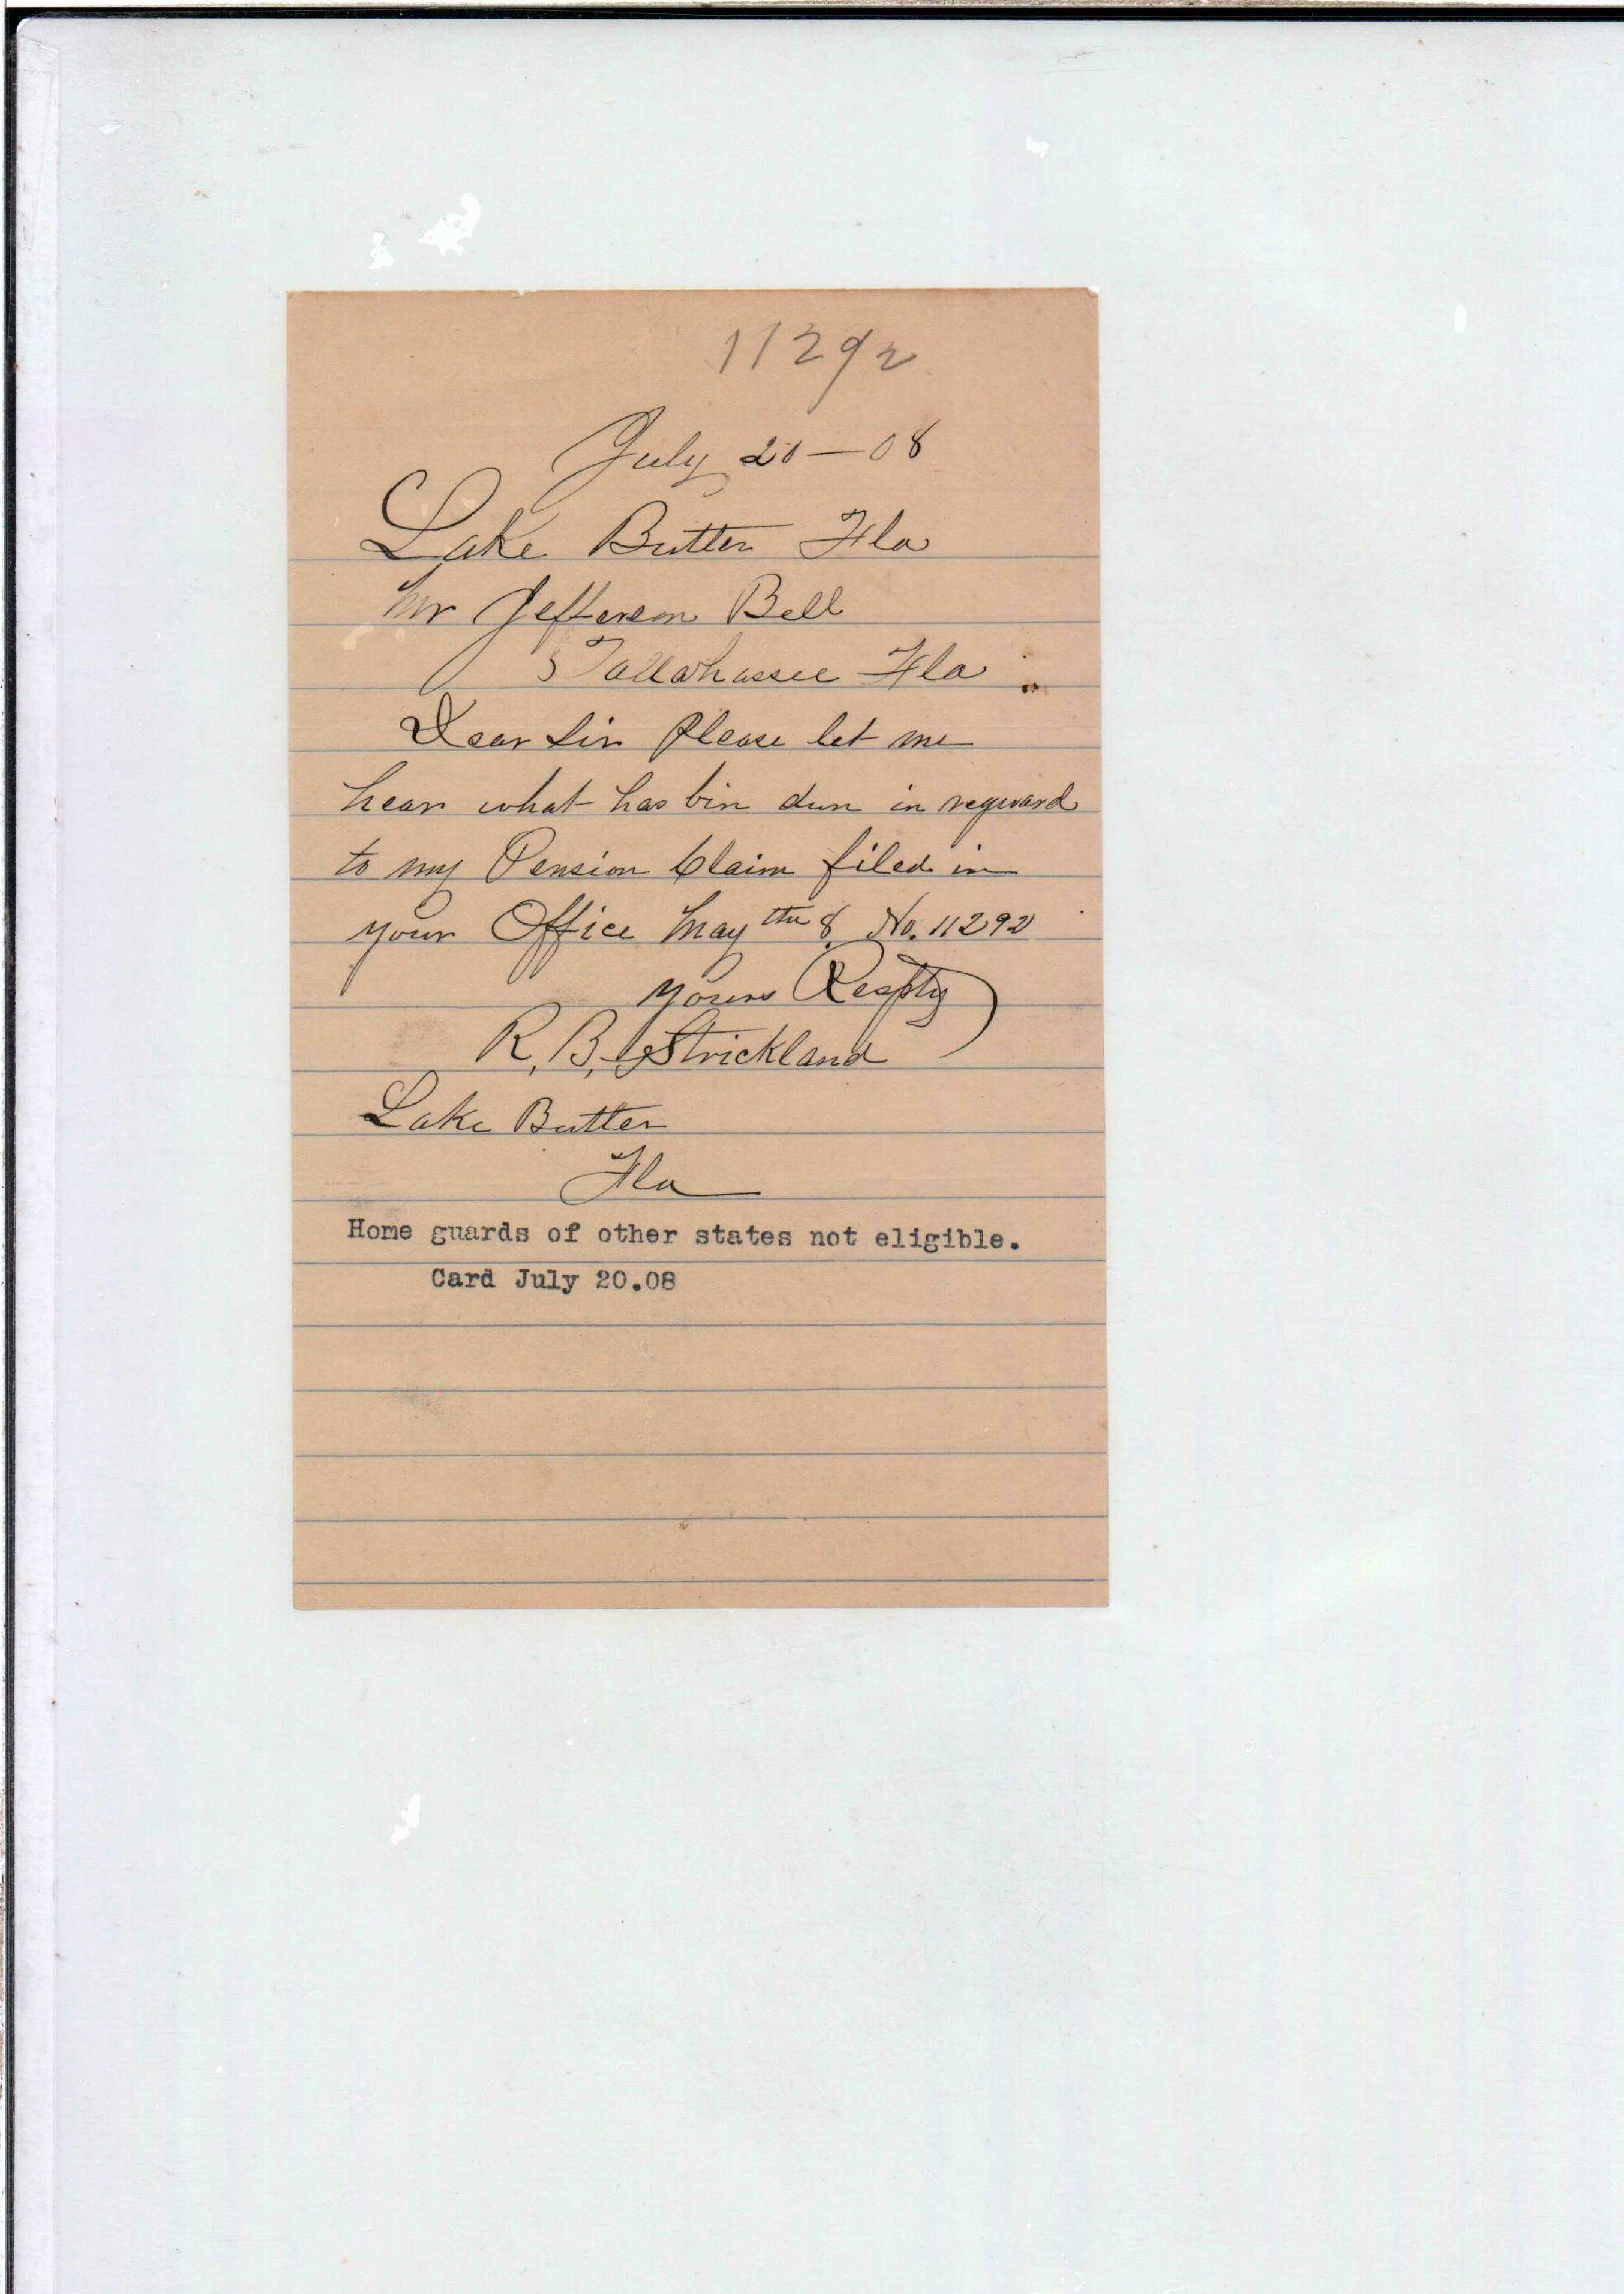 11292
July 20 — 08
Lake Butler Fla
Mr Jefferson Bell
Tallahassee Fla
Dear Sir Please let me
hear what has bin dun in reguard
to my Pension Claim filed in
your Office May the 8 No. 11292
yours Resptly
R. B. Strickland
Lake Butler
Fla
Home guards of other states not eligible.
Card July 20.08